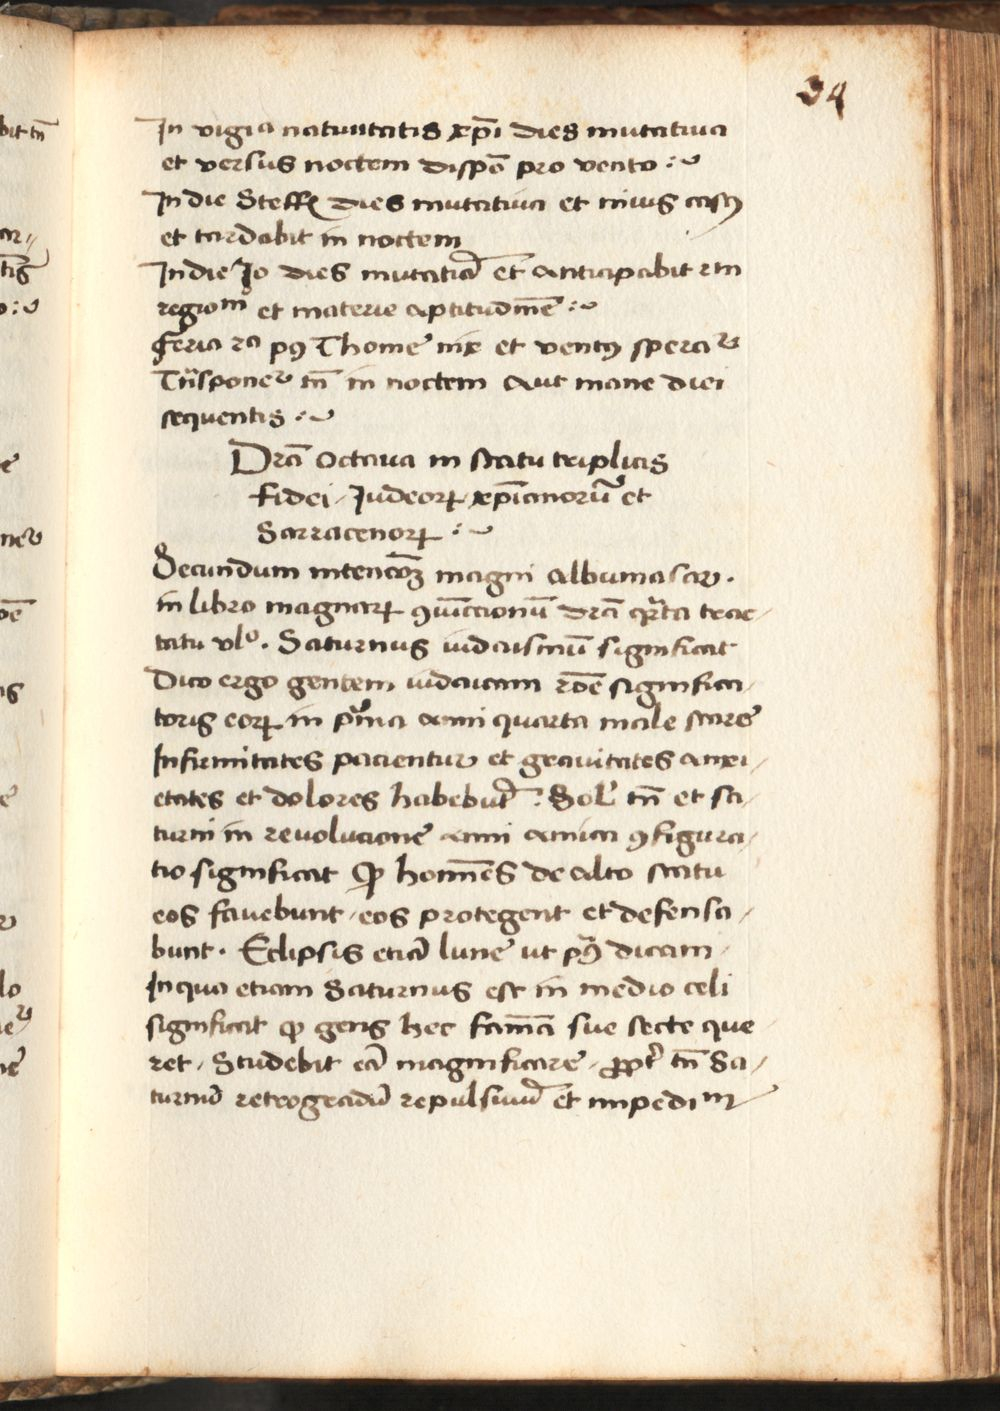 34
In vigia natiuitatis xp̄i dies mutatiua
et versus noctem dispo᷑ pro vento :~
In die Steff dies mutatiua et niuis casꝰ
et tardabit in noctem
In die Jo dies mutatiā et anticipabit in
regioᵐ et materie aptitudinē :~
feria 2a pꝰ Thome nix et ventꝰ sperar
Tn̄sponer tn̄ in noctem aut mane diei
sequentis :~
Dr̄a octaua in statu triplicis
fidei / Judeoꝝ xp̄ianorū et
Sarracenoꝝ :~
Secundum intencōꝫ magni albumasar .
in libro magnaꝝ ꝯiūccionū dr̄a qrta trac-
tatu vlo . Saturnus iudaismū significat
Dico ergo gentem iudaicam rōe significa-
toris eoꝝ in pma anni quarta male stare
Infirmitates pacientur et grauitates anxi-
etates et dolores habebūt . Sol tn̄ et sa-
turni in reuolucione anni amica ꝯfigura-
tio significat ꝙ homīes de alto statu
eos fauebunt / eos protegent et defensa-
bunt . Eclipsis etiā lune ut pꝰ dicam .
In qua etiam Saturnus est in medio celi
significat ꝙ gens hec famā sue secte que
ret / Studebit eā magnificare / ꝓpt tn̄ Sa-
turnū retrogradū repulsiuū et impedim